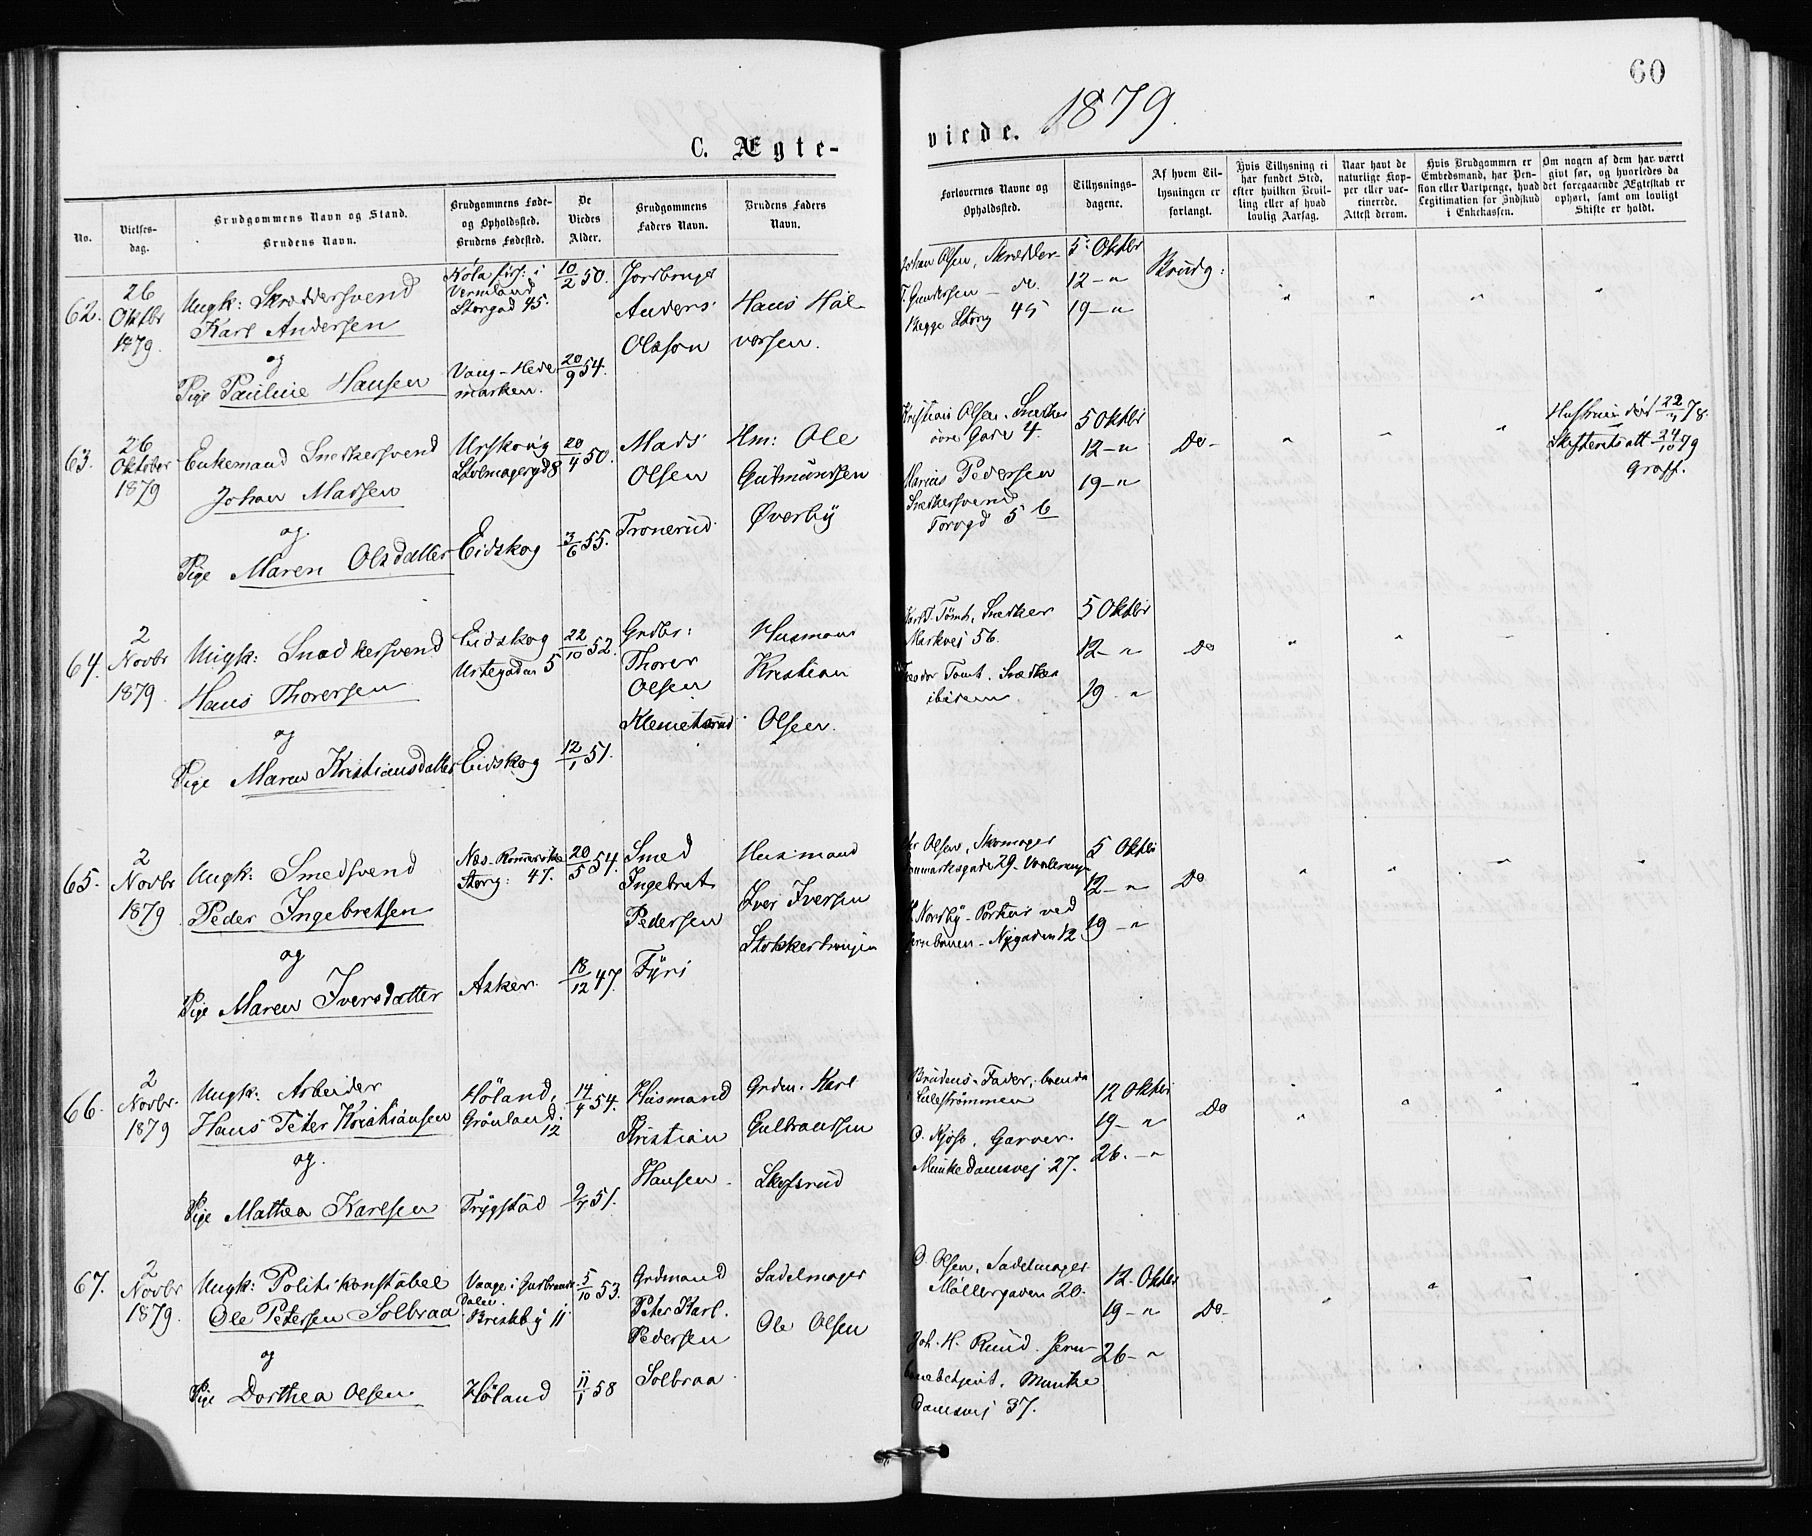 60
1879.
C. Ægte-
viede.
No.
Vielses-
dag.
Brudgommens Navn og Stand.
Brudens Navn.
Brudgommens Føde-
og Opholdssted.
Brudens Fødested.
De
Viedes
Alder.
Brudgommens
Faders Navn.
Brudens Faders
Navn.
Forlovernes Navne og
Opholdssted.
Tillysnings-
dagene.
Af hvem Til-
lysningen er
forlangt.
Hvis Tillysning ei
har fundet Sted,
efter hvilken Bevil-
ling eller af hvad
lovlig Aarsag.
Naar havt de
naturlige Kop-
per eller vac-
cinerede.
Attest derom.
Hvis Brudgommen er
Embedsmand, har Pen-
sion eller Vartpenge, hvad
Legitimation for Indskud
i Enkekassen.
Om nogen af dem har været
gift før, og hvorledes da
det foregaaende Ægteskab er
ophørt, samt om lovligt
Skifte er holdt.
62.
26
Oktbr
1879.
Ungk: Skræddersvend
Karl Andersen
og
Pige Pauline Hansen
Vermland
Storgad 45.
Vang - Hede
marken.
10/2 50.
20/9 54.
Jordbruger
Anders
Olsson
Hans Hal-
vorsen.
Johan Olsen, Skrædder
T. Gundersen - do.
Begge Storg 45
5: Oktbr
12 - "
19 - "
Brudg:
63.
26
Oktober
1879
Enkemand Snedkersvend
Johan Madsen
og
Pige Maren Olsdatter
Urskoug
Stolmagergd 8
Eidskog
20/4 50.
3/6 55.
Mads
Olsen
Tronerud
Hm: Ole
Gutmundsen
Øverby
Kristian Olsen, Snedker
øvre Gade 4.
Marius Pedersen
Snedkersvend
Torvgd 5 b
5 Oktbr
12 - "
19 - "
Do -
Hustruen død 22/11 78.
Skifteretsatt 24/10 79
Graff.
64.
2
Novbr
1879
Ungk: Snedkersvend
Hans Thorersen
og
Pige Maren Kristiansdatter
Eidskog
Urtegaden 5
Eidskog
22/10 52.
12/1 51.
Grdbr:
Thorer
Olsen
Klemetsrud
Husmand
Kristian
Olsen.
Tomt, Snedker
Markvej 56.
Tomt, Snedker
ibidem
5 Oktbr
12 - "
19 - "
Do
65.
2
Novbr
1879
Ungk: Smedsvend
Peder Ingebretsen
og
Pige Maren Iversdatter
Næs - Romerike
Storg: 47.
Asker.
20/5 54.
18/12 47.
Smed
Ingebret
Pedersen
Fyri
Husmand
Iver Iversen
Olsen, Skomager
Danmarksgade 29 - Vaalerengen
Nordby - Portør ved
Jernbanen - Nygaden 12
5 Oktbr
12 - "
19 - "
Do
66.
2
Novbr.
1879
Ungk: Arbeider
Hans Peter Kristiansen
og.
Pige Mathea Karlsen
Høland,
Grønland.
12
Trygstad
14/4 54.
9/7 51.
Husmand
Kristian
Hansen.
Grdm. Karl
Gulbrandsen
Skofsrud
Brudens Fader,
Lillestrømmen
O. Kjøs, Garver.
Munkedamsvej 27.
12 Oktbr
19 - "
26. - "
Do
67.
2
Novbr
1879.
Ungk: Politikonstabel
Ole Petersen Solbraa
og
Pige Dorthea Olsen
Vaage i Gudbrands-
dalen.
Briskeby 11
Høland
5/10 53.
11/1 58
Grdmand
Peter Karl.
Pedersen
Solbraa
Sadelmager
Ole Olsen
O. Olsen, Sadelmager
Møllergaden 20.
Joh. H. Ruud. Jern-
banebetjent, Munke
damsvej 37.
12 - Oktbr
19 - "
26 - "
Do -